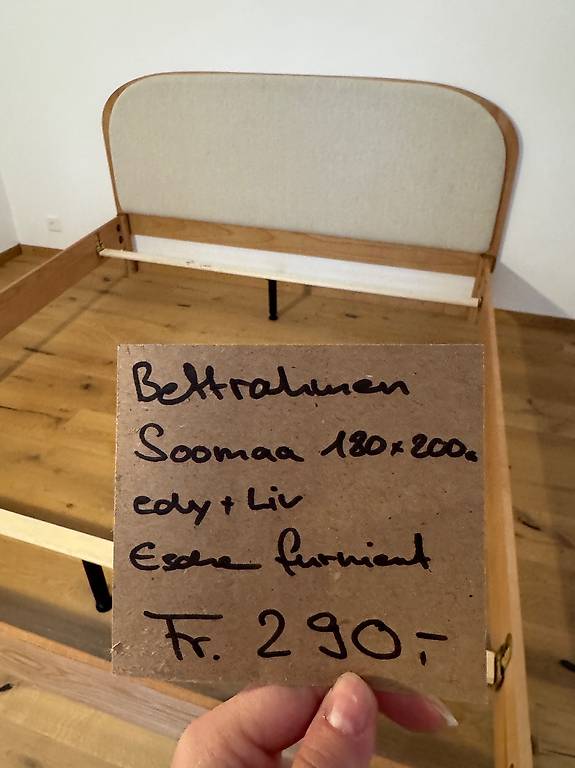 Bettrahmen
Soomaa 180x200
edy + Liv
Esche furniert
Fr. 290.-